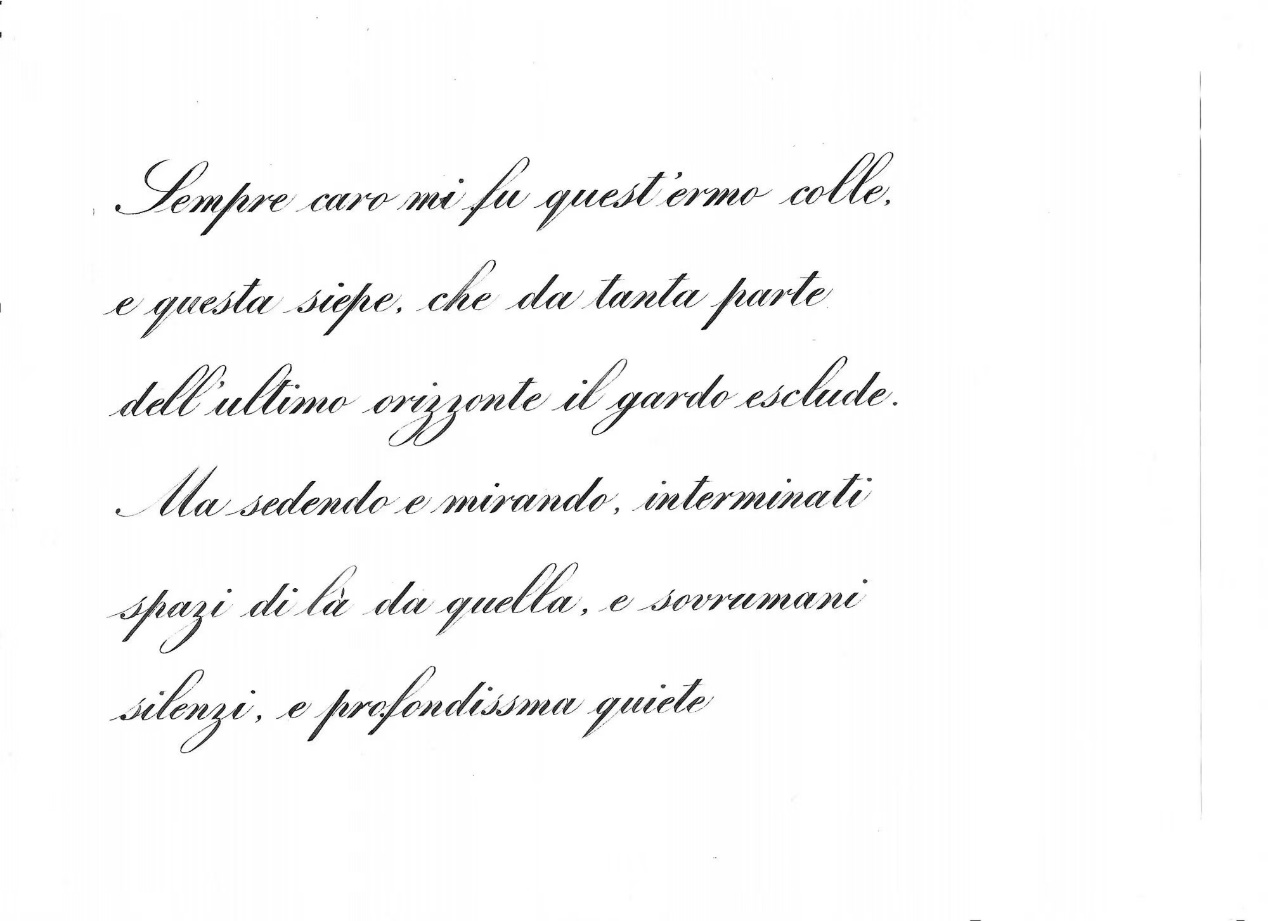 Sempre caro mi fu quest'ermo colle,
e questa siepe, che da tanta parte
dell'ultimo orizzonte il gardo esclude.
Ma sedendo e mirando, interminati
spazi di là da quella, e sovrumani
silenzi, e profondissma quiete